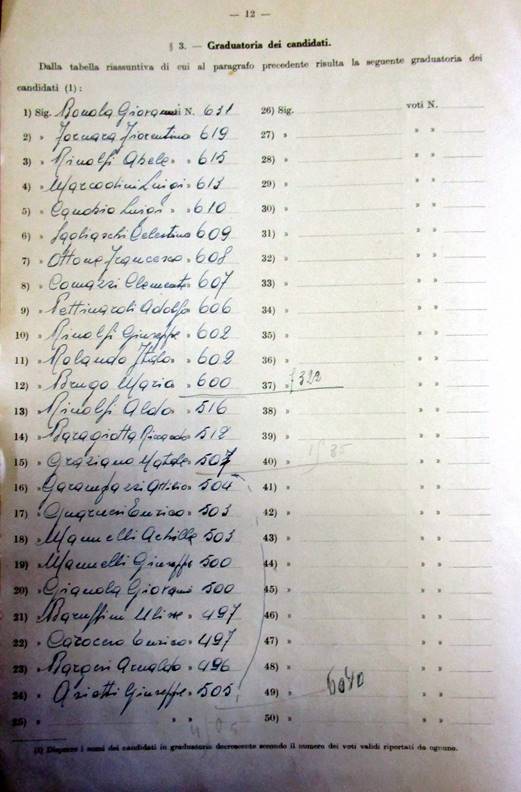 — 12 —
§ 3. — Graduatoria dei candidati.
Dalla tabella riassuntiva di cui al paragrafo precedente risulta la seguente graduatoria dei
candidati (1) :
1) Sig. Bonola Giovanni N. 631
2) » Fornara Fiorentino 619
3) » Rinolfi Abele » 615
4) » Marcodini Luigi » 613
5) » Canobio Luigi » » 610
6) » Sagliaschi Celestino 609
7) » Ottone Francesco » 608
8) » Comazzi Clemente » 607
9) » Pettinaroli Adolfo » 606
10) » Rinolfi Giuseppe » 602
11) » Rolando Italo » 602
12) » Brugo Maria » 600
13) » Rinolfi Aldo » 516
14) » Baragiotta Riccardo » 512
15) » Graziano Natale » 507
16) » Garampazzi Attilio » 504
17) » Enrico » 503
18) » Mannelli Achille » 503
19) » Mannelli Giuseppe » 500
20) » Gianola Giovanni » 500
21) » Baruffini Ulisse » 497
22) » Enrico » 497
23) » Arnaldo » 496
24) » Ariotti Giuseppe » 505
25) » » »
26) Sig. voti N.
27) » » »
28) » » »
29) » » »
30) » » »
31) » » »
32) » » »
33) » » »
34) » » »
35) » » »
36) » » »
37) » 7322 » »
38) » » »
39) » » »
40) » » »
41) » » »
42) » » »
43) » » »
44) » » »
45) » » »
46) » » »
47) » » »
48) » » »
49) » 6040 » »
50) » » »
(1) Disporre i nomi dei candidati in graduatoria decrescente secondo il numero dei voti validi riportati da ognuno.